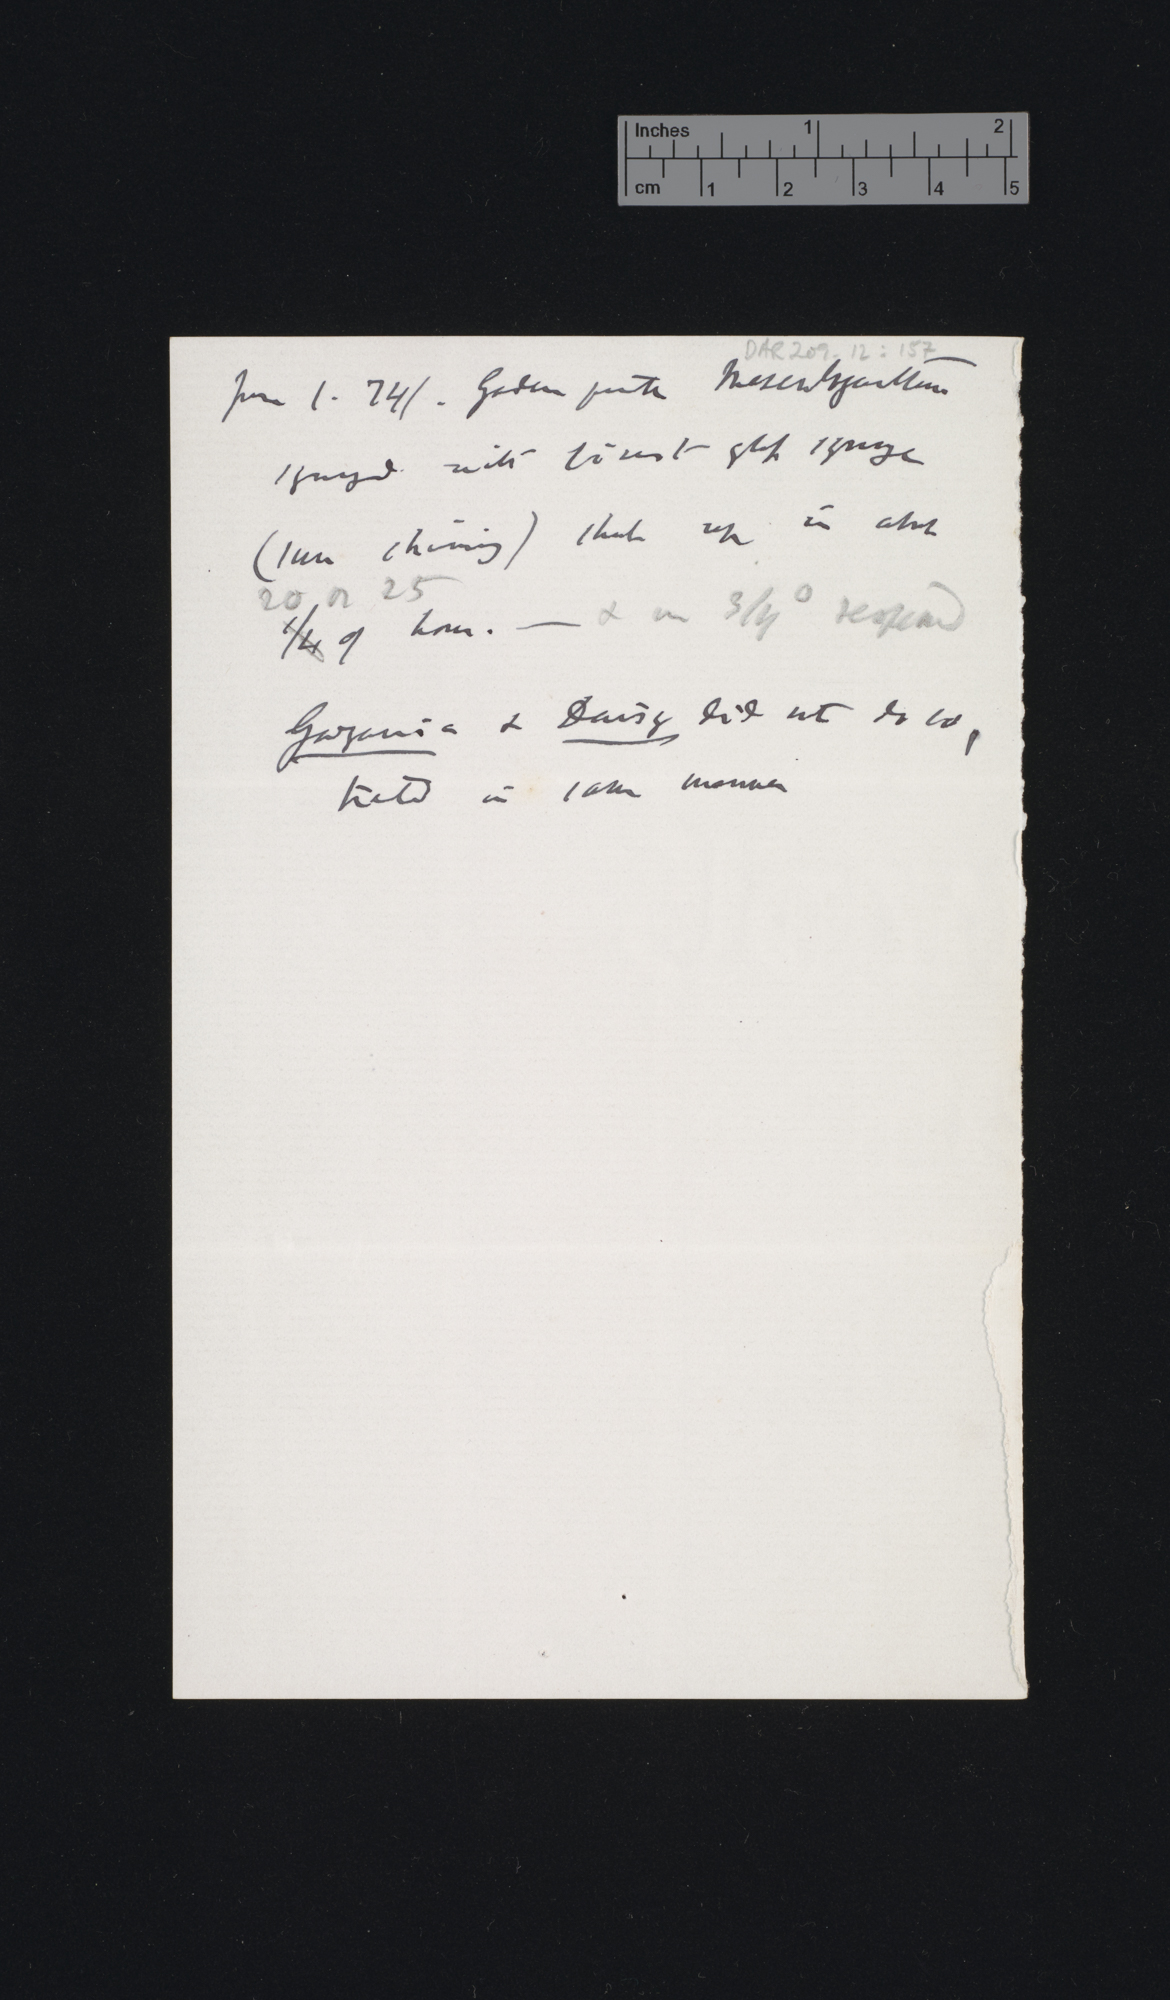 Inches 1 2
cm 1 2 3 4 5
DAR 209.12:157
June 1. 74/. Garden Mesembryanthem
syringed with finest glass syringe
(sun shining) shut up in about
20 or 25
1/4 of hour. — & in 3/4° reopened
Gazania & Daisy did not do so,
treated in same manner